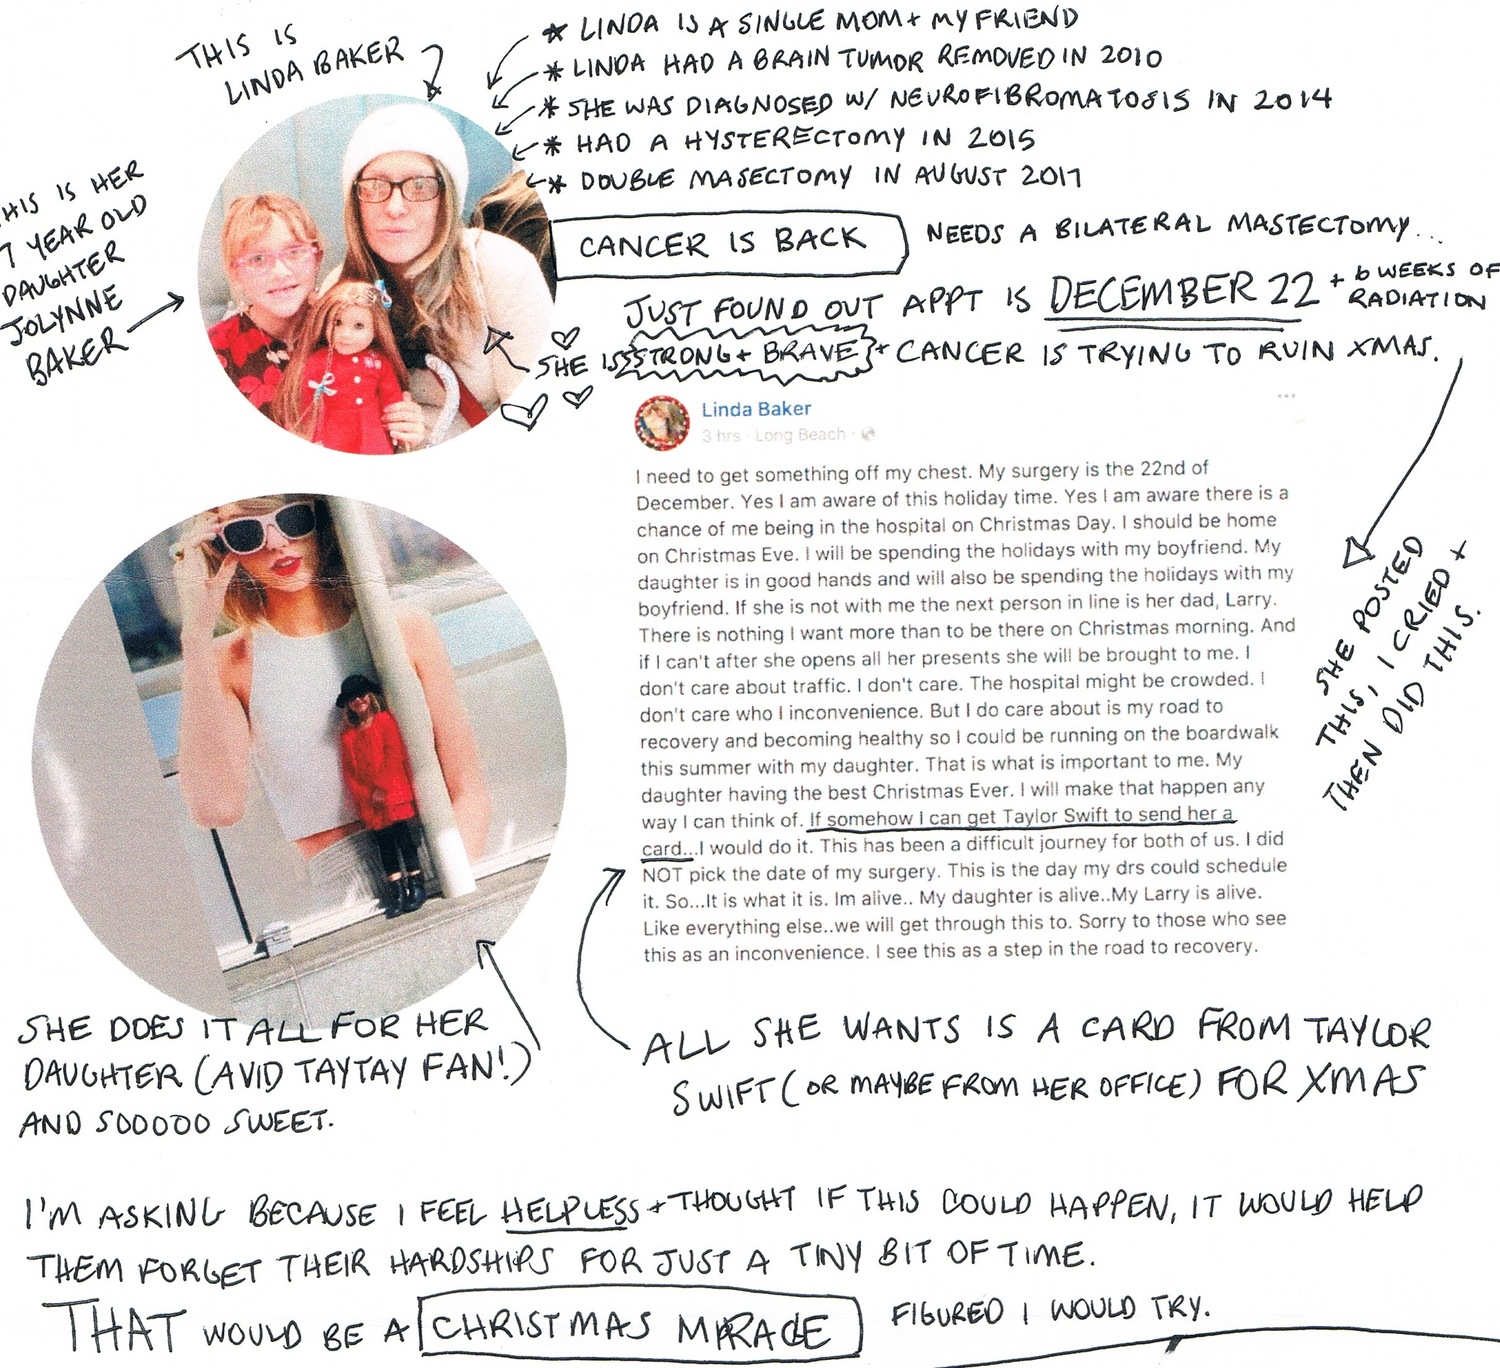 THIS IS
LINDA BAKER
* LINDA IS A SINGLE MOM + MY FRIEND
* LINDA HAD A BRAIN TUMOR REMOVED IN 2010
* SHE WAS DIAGNOSED W/ NEUROFIBROMATOSIS IN 2014
* HAD A HYSTERECTOMY IN 2015
* DOUBLE MASECTOMY IN AUGUST 2017
HIS IS HER
7 YEAR OLD
DAUGHTER
JOLYNNE
BAKER
CANCER IS BACK NEEDS A BILATERAL MASTECTOMY...
JUST FOUND OUT APPT IS DECEMBER 22 + 6 WEEKS OF
RADIATION
SHE IS STRONG + BRAVE + CANCER IS TRYING TO RUIN XMAS.
Linda Baker
3 hrs · Long Beach ·
I need to get something off my chest. My surgery is the 22nd of
December. Yes I am aware of this holiday time. Yes I am aware there is a
chance of me being in the hospital on Christmas Day. I should be home
on Christmas Eve. I will be spending the holidays with my boyfriend. My
daughter is in good hands and will also be spending the holidays with my
boyfriend. If she is not with me the next person in line is her dad, Larry.
There is nothing I want more than to be there on Christmas morning. And
if I can't after she opens all her presents she will be brought to me. I
don't care about traffic. I don't care. The hospital might be crowded. I
don't care who I inconvenience. But I do care about is my road to
recovery and becoming healthy so I could be running on the boardwalk
this summer with my daughter. That is what is important to me. My
daughter having the best Christmas Ever. I will make that happen any
way I can think of. If somehow I can get Taylor Swift to send her a
card...I would do it. This has been a difficult journey for both of us. I did
NOT pick the date of my surgery. This is the day my drs could schedule
it. So...It is what it is. Im alive.. My daughter is alive..My Larry is alive.
Like everything else..we will get through this to. Sorry to those who see
this as an inconvenience. I see this as a step in the road to recovery.
SHE POSTED
THIS, I CRIED +
THEN DID THIS.
SHE DOES IT ALL FOR HER
DAUGHTER (AVID TAYTAY FAN!)
AND SOOOOO SWEET.
ALL SHE WANTS IS A CARD FROM TAYLOR
SWIFT (OR MAYBE FROM HER OFFICE) FOR XMAS
I'M ASKING BECAUSE I FEEL HELPLESS + THOUGHT IF THIS COULD HAPPEN, IT WOULD HELP
THEM FORGET THEIR HARDSHIPS FOR JUST A TINY BIT OF TIME.
THAT WOULD BE A CHRISTMAS MIRACLE FIGURED I WOULD TRY.